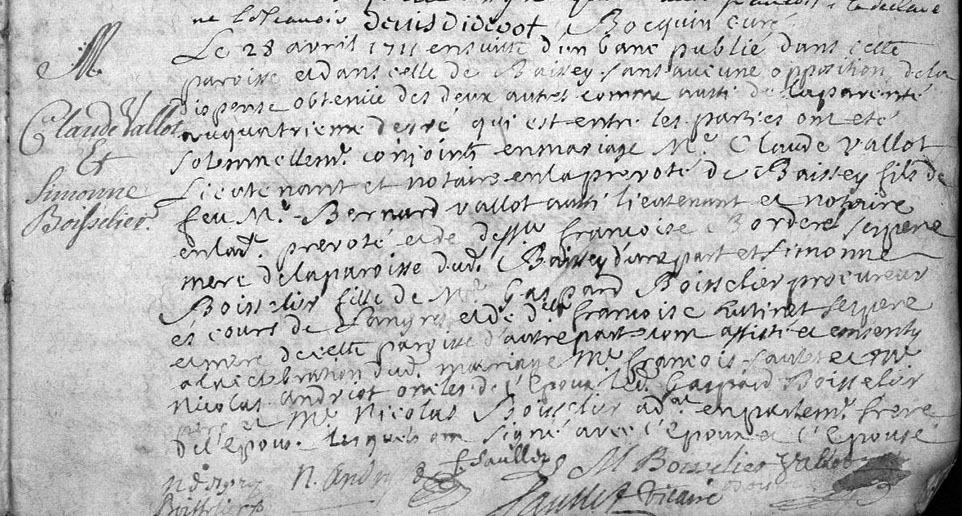 Denis Diderot Bocquin curé
M
Claude Vallot
Et
Simonne
Boisselier
Le 28 avril 1711 ensuitte d'un banc publié dans cette
paroisse et dans celle de Baissey sans aucune opposition de la
dispense obtenue des deux autres comme aussi de la parenté
au quatrieme degré qui est entre les parties ont eté
solemnellemt. conjoints en mariage Me. Claude Vallot
Lieutenant et notaire en la prevoté de Baissey fils de
feu Me. Bernard Vallot aussi lieutenant et notaire
en lad. prevoté et de francoise Borderet ses pere
mere de la paroisse dud. Baissey d'une part et Simonne
Boisselier fille de Me. Gaspard Boisselier procureur
és cours de Langres et de francoise hutinet ses pere
et mere de cette paroisse d'autre part ont assisté et consenty
a la celebration dud. mariage Me. francois et Me.
Nicolas Andriot oncles de l'epoux led. Gaspard Boisselier
pere et Me. Nicolas Boisselier ad. en parlemt. frere
de l'epouse lesquels ont signé avec l'epoux et l'epouse
N. Andriot M Boisselier Vallot
Boisselier vicaire